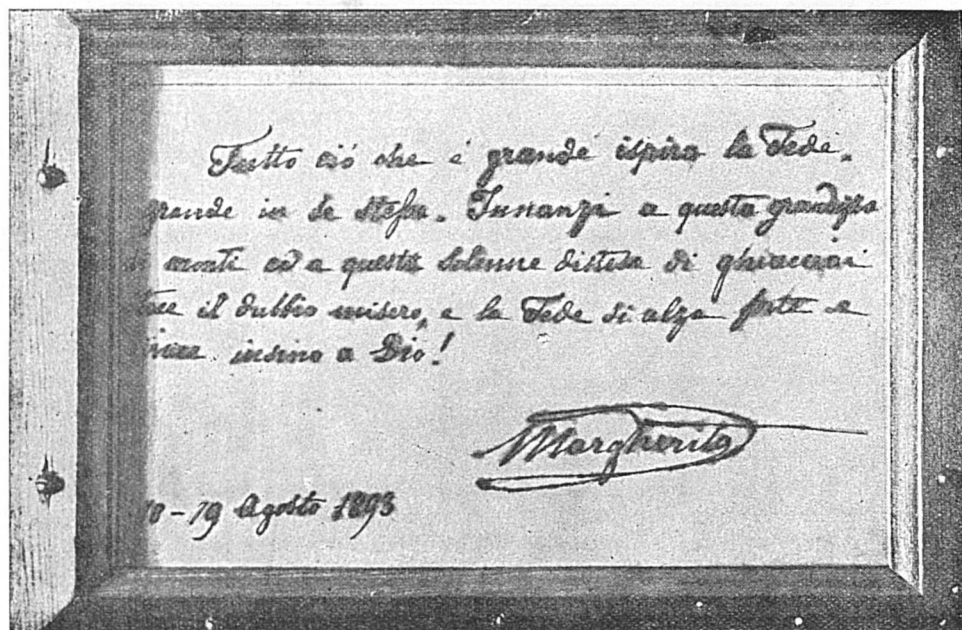 Tutto ciò che è grande ispira la Fede.
grande in se stessa. Innanzi a questa grandezza
monti ed a questa solenne distesa di ghiacciai
il dubbio misero, e la Fede si alza forte e
insino a Dio!
Margherita
18-19 Agosto 1893